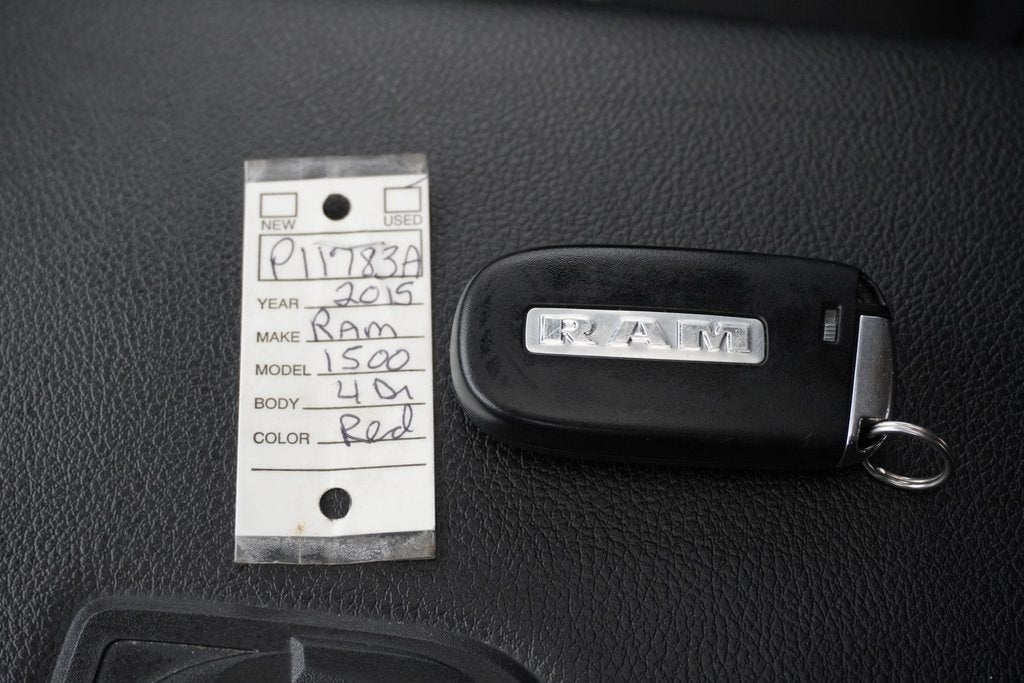 NEW USED
P11783A
YEAR 2015
MAKE RAM
MODEL 1500
BODY 4 Dr
COLOR Red
RAM